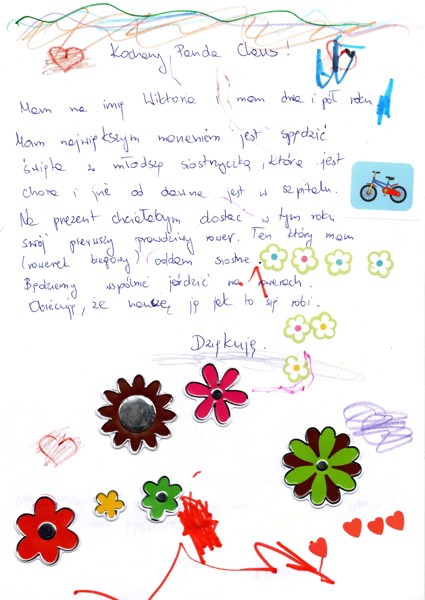 Kochany Panda Claus!
Mam na imię Wiktoria i mam dwa i pół roku
Mam największym marzeniem jest spędzić
święta z młodszą siostrzyczką, która jest
chora i już od dawna jest w szpitalu.
Na prezent chciałabym dostać w tym roku
swój pierwszy prawdziwy rower. Ten który mam
(rowerek biegowy) oddam siostrze.
Będziemy wspólnie jeździć na rowerach.
Obiecuję, że nauczę ją jak to się robi.
Dziękuję.